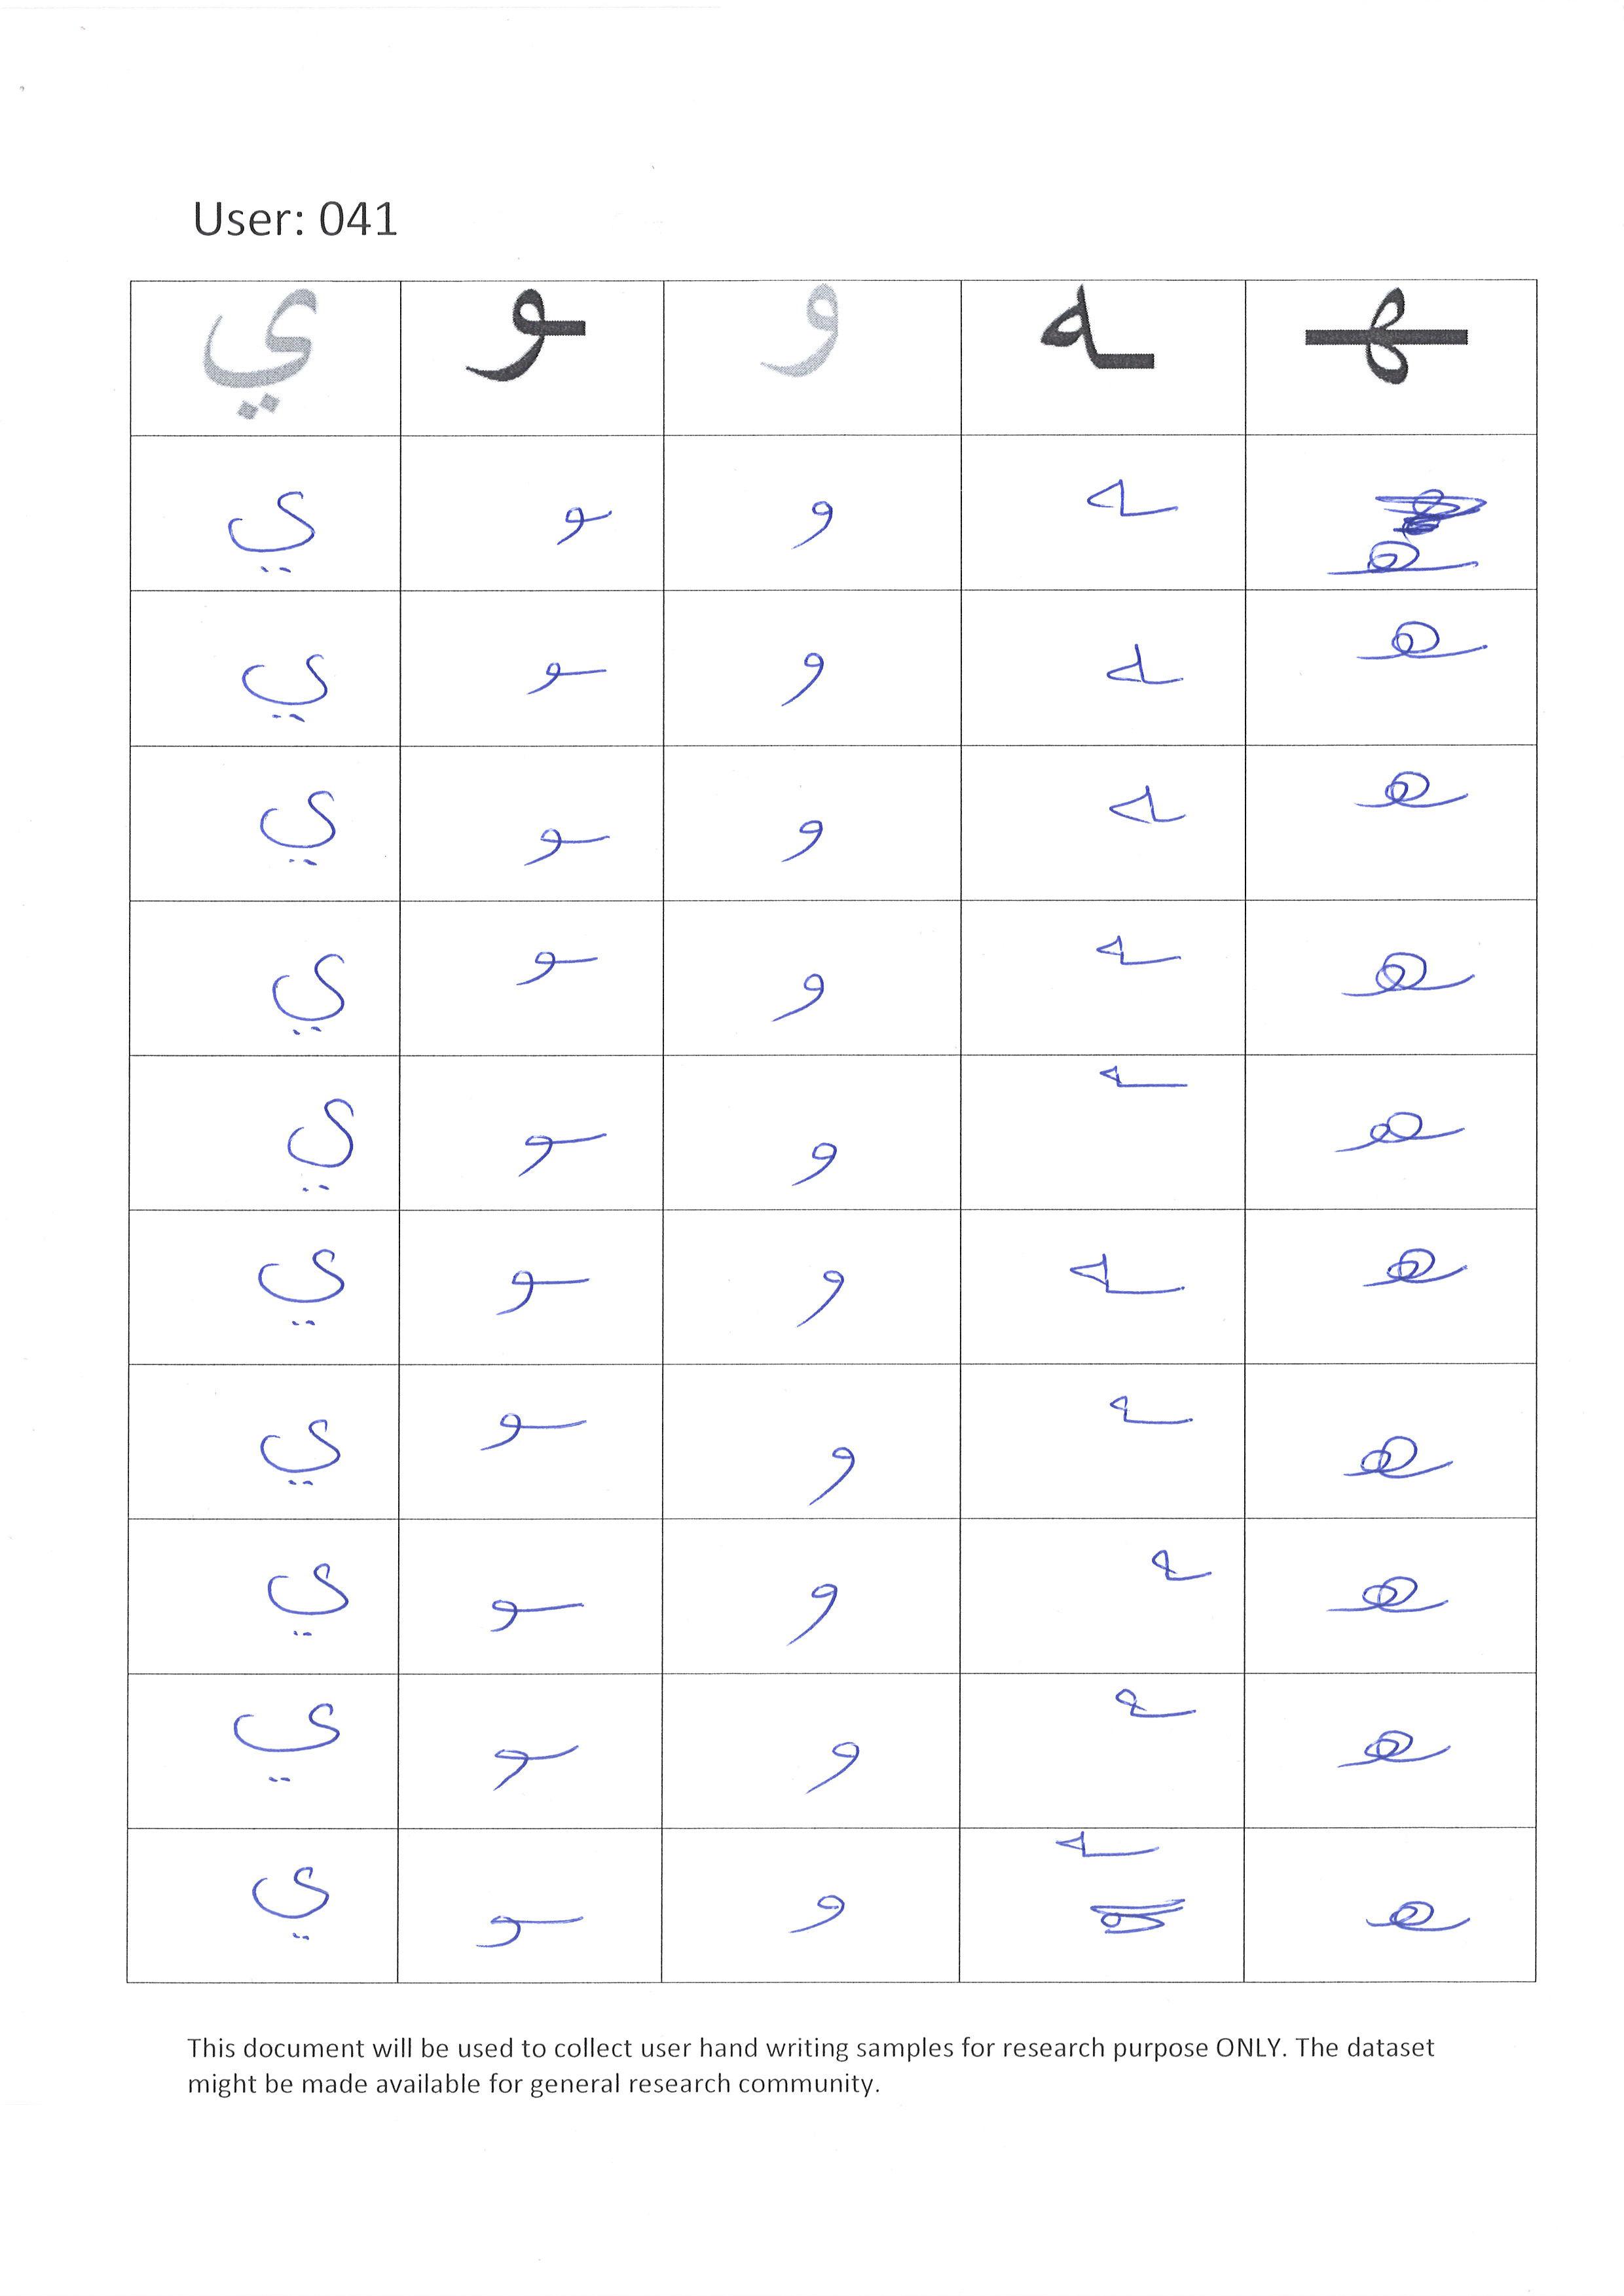 User: 041
ي ـو و ـه ـهـ
ي ـو و ـه ـهـ
ي ـو و ـه ـهـ
ي ـو و ـه ـهـ
ي ـو و ـه ـهـ
ي ـو و ـه ـهـ
ي ـو و ـه ـهـ
ي ـو و ـه ـهـ
ي ـو و ـه ـهـ
ي ـو و ـه ـهـ
ي ـو و ـه ـهـ
This document will be used to collect user hand writing samples for research purpose ONLY. The dataset
might be made available for general research community.